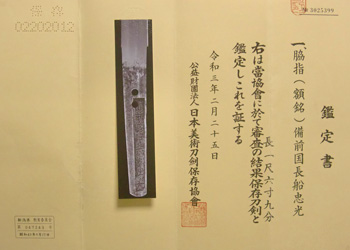 鑑定書
一、脇指(額銘)備前国長船忠光
長一尺六寸九分
右は當協會に於て審査の結果保存刀剣と
鑑定しこれを証する
令和三年二月二十五日
公益財團法人日本美術刀劍保存協會
保存
02202012
№ 3025399